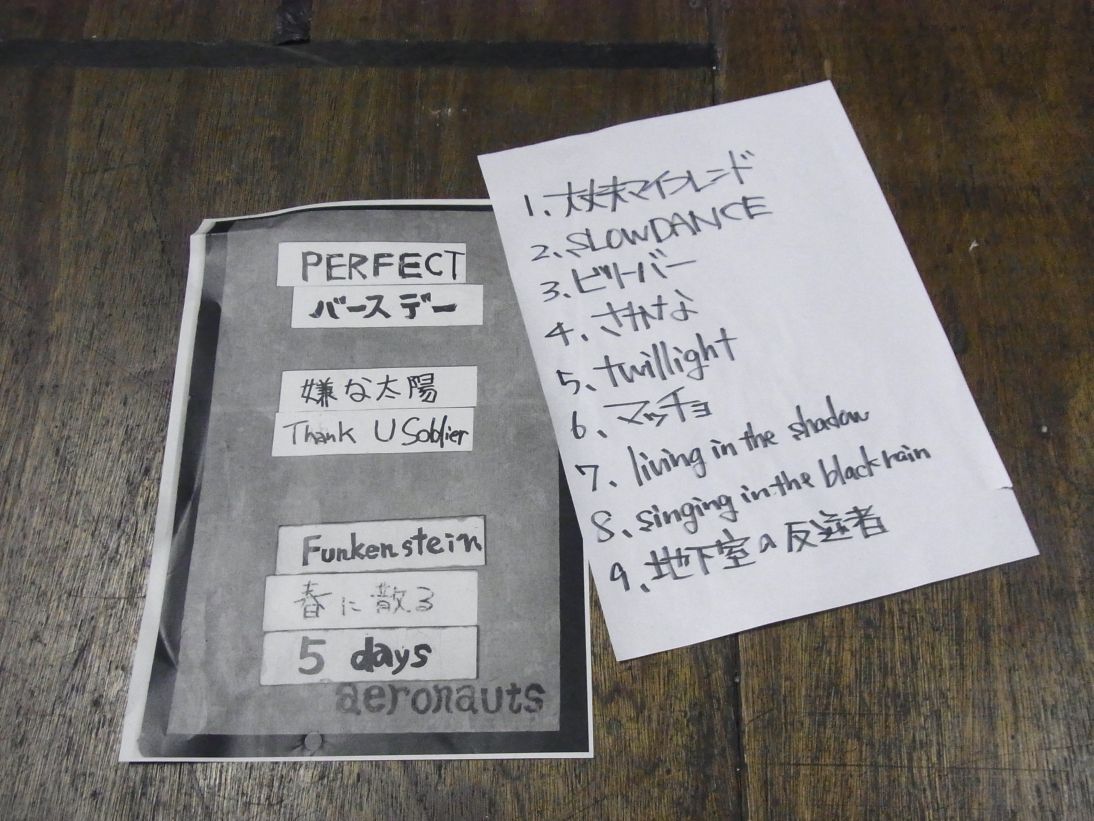 PERFECT
バースデー
嫌な太陽
Thank U Soldier
Funkenstein
春に散る
5 days
aeronauts
1、大丈夫マイフレンド
2、SLOWDANCE
3、ビリーバー
4、さかな
5、twillight
6、マッチョ
7、living in the shadow
8、singing in the black rain
9、地下室の反逆者